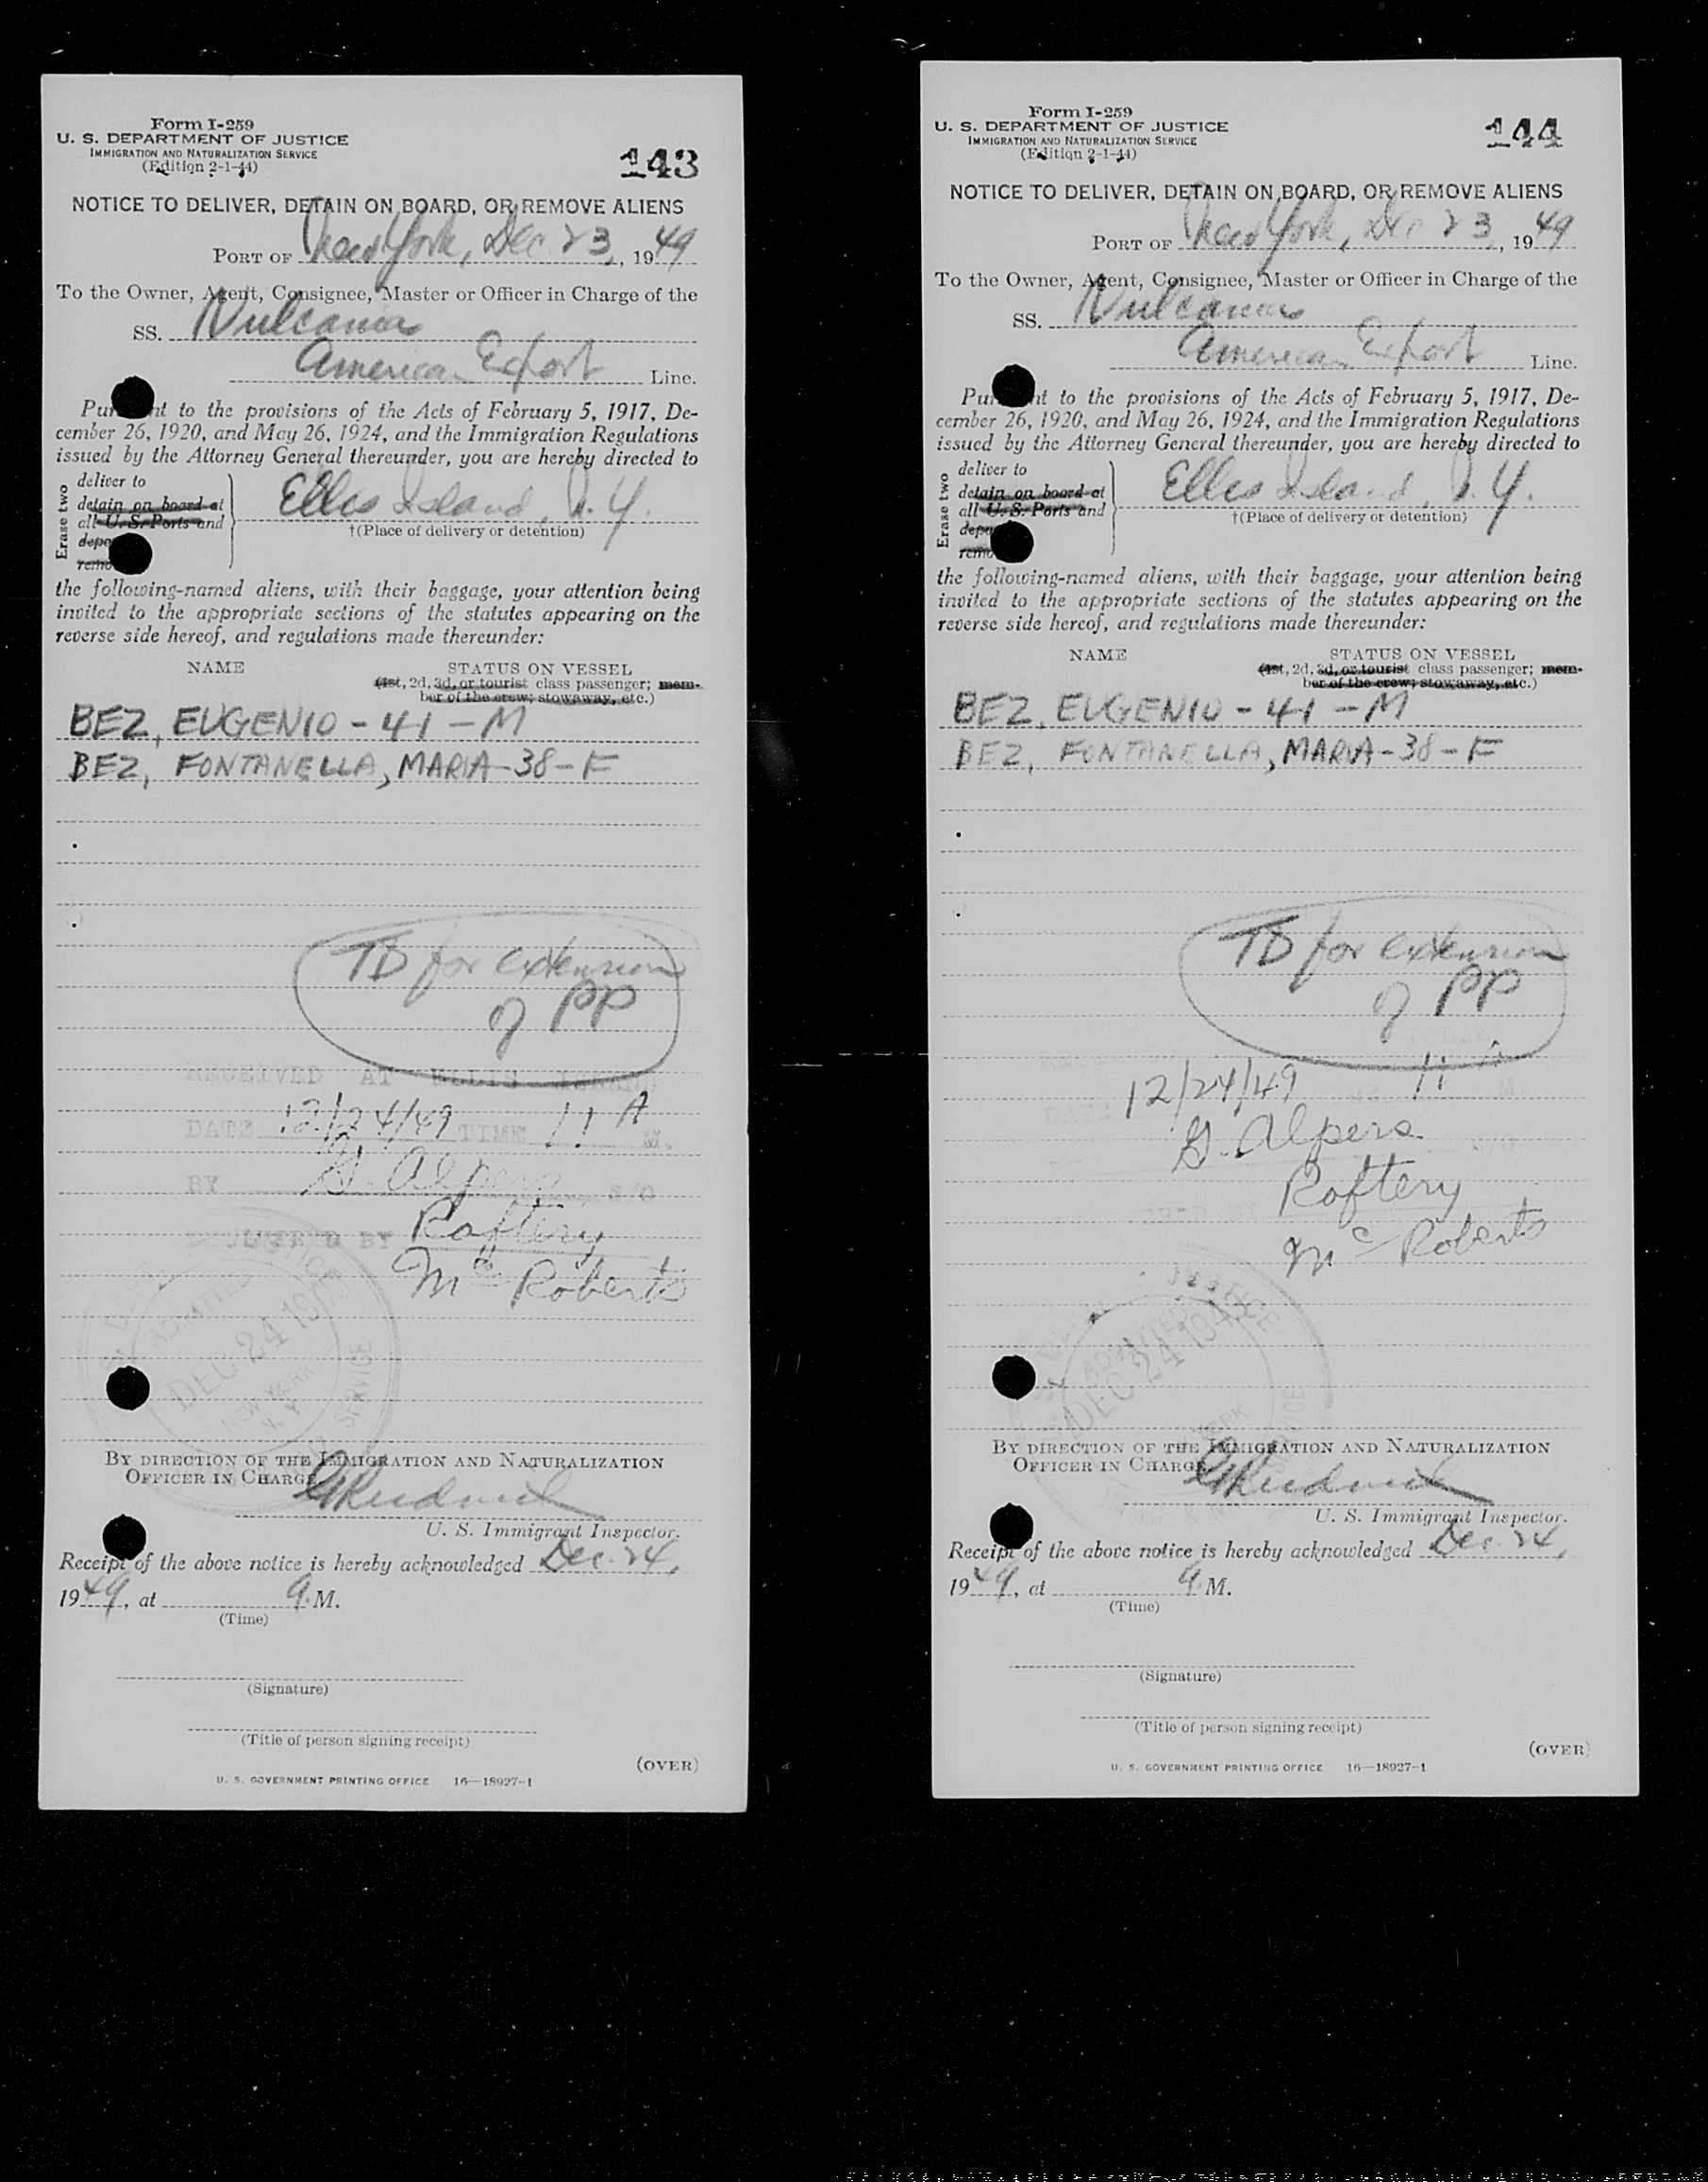 Form I-259
U. S. DEPARTMENT OF JUSTICE
IMMIGRATION AND NATURALIZATION SERVICE
(Edition 2-1-44)
143
NOTICE TO DELIVER, DETAIN ON BOARD, OR REMOVE ALIENS
PORT OF New York, Dec 23, 1949
To the Owner, Agent, Consignee, Master or Officer in Charge of the
SS. Vulcania
American Export Line.
Pur nt to the provisions of the Acts of February 5, 1917, De-
cember 26, 1920, and May 26, 1924, and the Immigration Regulations
issued by the Attorney General thereunder, you are hereby directed to
Erase two
deliver to
detain on board at
all U. S. Ports and
depo
remo
Ellis Island, N. Y.
†(Place of delivery or detention)
the following-named aliens, with their baggage, your attention being
invited to the appropriate sections of the statutes appearing on the
reverse side hereof, and regulations made thereunder:
NAME STATUS ON VESSEL
(1st, 2d, 3d, or tourist class passenger; mem-
ber of the crew; stowaway, etc.)
BEZ, EUGENIO - 41 - M
BEZ, FONTANELLA, MARIA - 38 - F
TD for extension
of PP
RECEIVED AT ELLIS ISLAND
DATE 12/24/49 TIME 11 A M.
BY G. Alpers S/O
DELIVERED BY Raftery
McRoberts
ADMITTED
DEC 24 19
NEW YORK
N. Y.
SERVICE
BY DIRECTION OF THE IMMIGRATION AND NATURALIZATION
OFFICER IN CHARGE
U. S. Immigrant Inspector.
Receipt of the above notice is hereby acknowledged Dec. 24,
1949, at A. M.
(Time)
(Signature)
(Title of person signing receipt)
(OVER)
U. S. GOVERNMENT PRINTING OFFICE 16—18927-1
Form I-259
U. S. DEPARTMENT OF JUSTICE
IMMIGRATION AND NATURALIZATION SERVICE
(Edition 2-1-44)
144
NOTICE TO DELIVER, DETAIN ON BOARD, OR REMOVE ALIENS
PORT OF New York, Dec 23, 1949
To the Owner, Agent, Consignee, Master or Officer in Charge of the
SS. Vulcania
American Export Line.
Pur nt to the provisions of the Acts of February 5, 1917, De-
cember 26, 1920, and May 26, 1924, and the Immigration Regulations
issued by the Attorney General thereunder, you are hereby directed to
Erase two
deliver to
detain on board at
all U. S. Ports and
depo
remo
Ellis Island, N. Y.
†(Place of delivery or detention)
the following-named aliens, with their baggage, your attention being
invited to the appropriate sections of the statutes appearing on the
reverse side hereof, and regulations made thereunder:
NAME STATUS ON VESSEL
(1st, 2d, 3d, or tourist class passenger; mem-
ber of the crew; stowaway, etc.)
BEZ, EUGENIO - 41 - M
BEZ, FONTANELLA, MARIA - 38 - F
TD for extension
of PP
12/24/49 11 A
G. Alpers
Raftery
McRoberts
JUSTICE
ADMITTED
DEC 24 194
BY DIRECTION OF THE IMMIGRATION AND NATURALIZATION
OFFICER IN CHARGE
U. S. Immigrant Inspector.
Receipt of the above notice is hereby acknowledged Dec. 24,
1949, at A. M.
(Time)
(Signature)
(Title of person signing receipt)
(OVER)
U. S. GOVERNMENT PRINTING OFFICE 16—18927-1